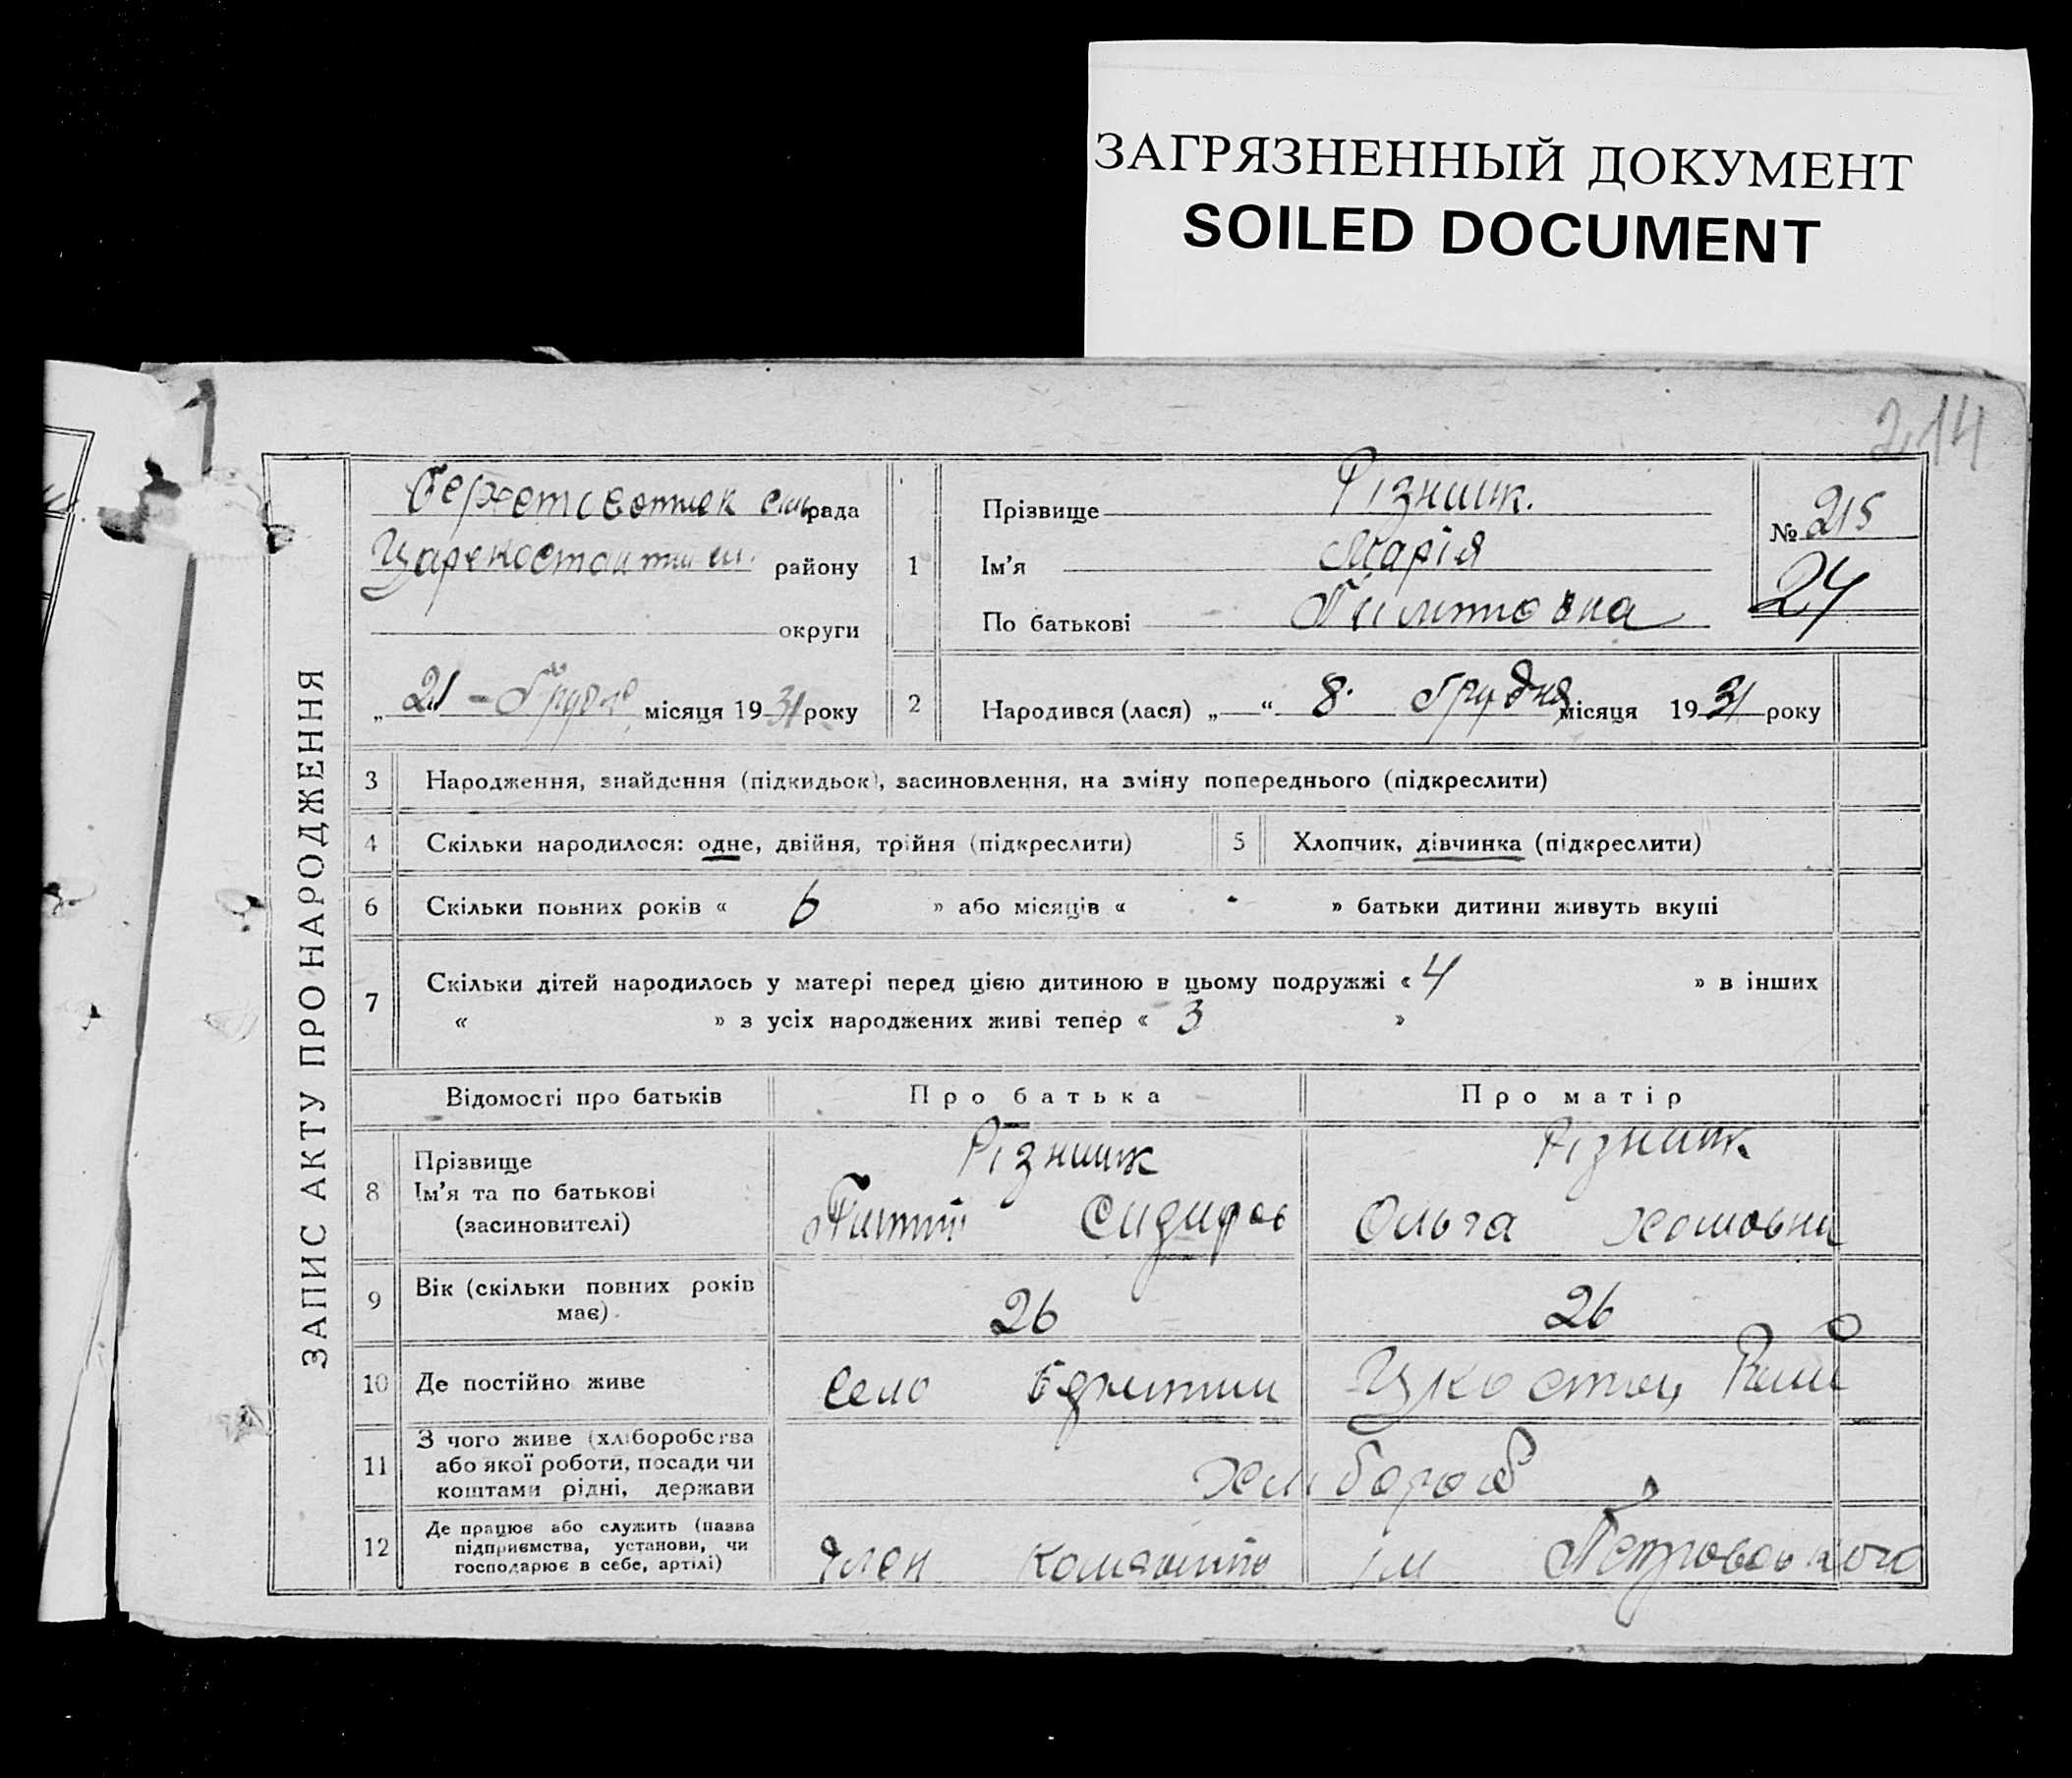 ЗАГРЯЗНЕННЫЙ ДОКУМЕНТ
SOILED DOCUMENT
214
ЗАПИС АКТУ ПРО НАРОДЖЕННЯ
рада
району
округи
„ 21 - Грудня місяця 1931 року
1
Прізвище Різник.
Ім'я Марія
По батькові
№ 215
24
2
Народився (лася) „ “ 8. Грудня місяця 1931 року
3 Народження, знайдення (підкидьок), засиновлення, на зміну попереднього (підкреслити)
4 Скільки народилося: одне, двійня, трійня (підкреслити) 5 Хлопчик, дівчинка (підкреслити)
6 Скільки повних років « 6 » або місяців « - » батьки дитини живуть вкупі
7 Скільки дітей народилось у матері перед цією дитиною в цьому подружжі « 4 » в інших
« » з усіх народжених живі тепер « 3 »
Відомості про батьків Про батька Про матір
8 Прізвище Різник Різник
Ім'я та по батькові Ольга Хомовна
(засиновителі)
9 Вік (скільки повних років має). 26 26
10 Де постійно живе село
11 З чого живе (хліборобства
або якої роботи, посади чи
коштами рідні, держави
хлібороб
12 Де працює або служить (назва
підприємства, установи, чи
господарює в себе, артілі)
член ім Петровського